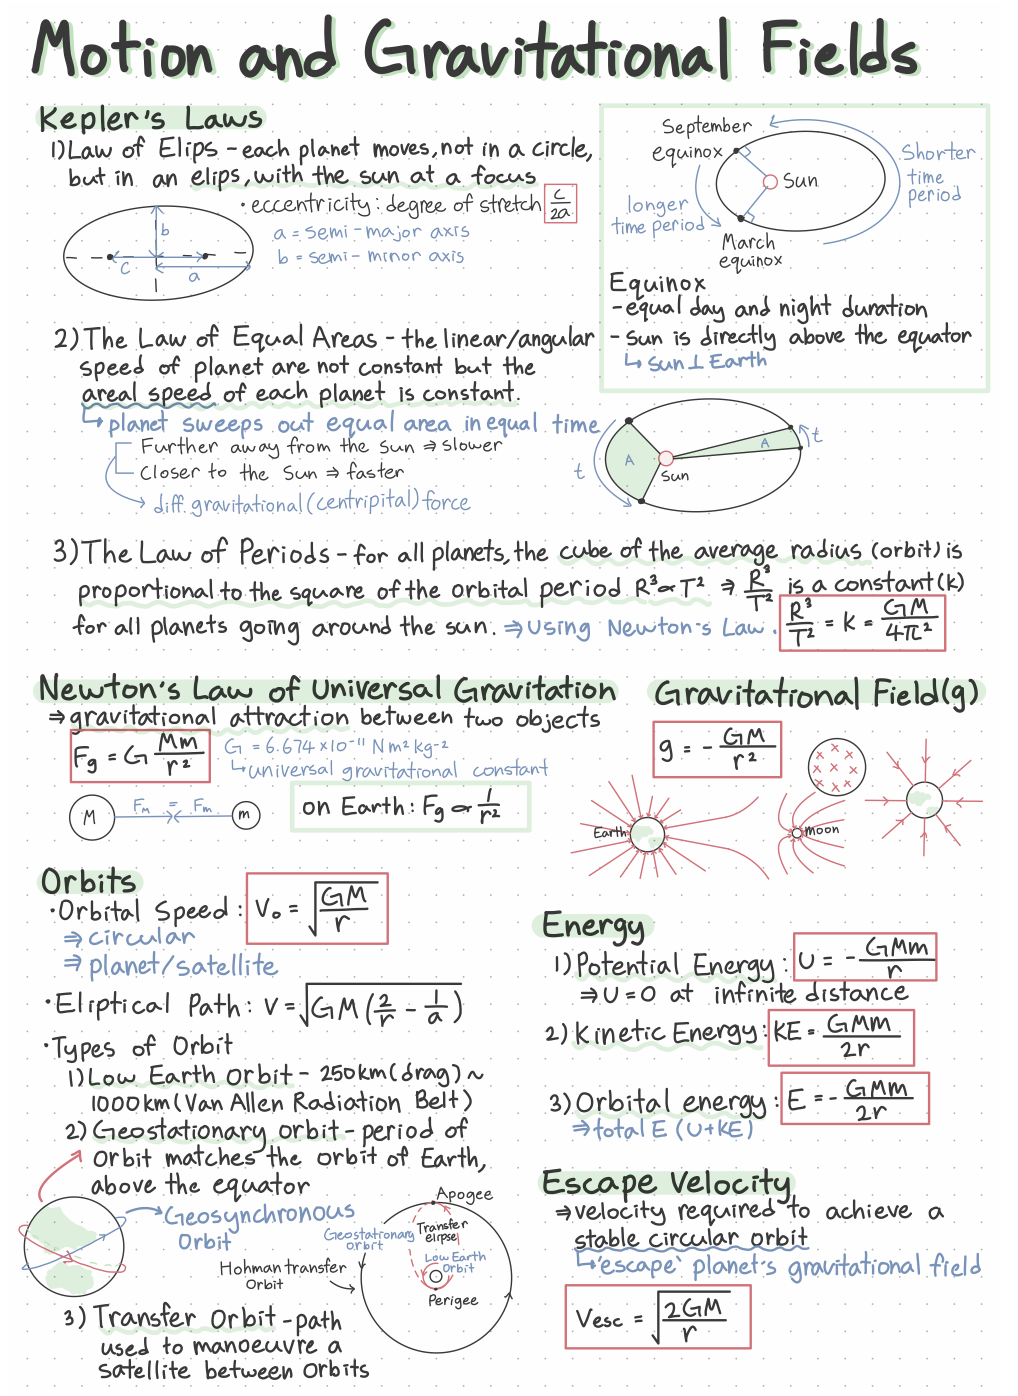 Motion and Gravitational Fields
Kepler's Laws
1) Law of Elips - each planet moves, not in a circle,
but in an elips, with the sun at a focus
• eccentricity: degree of stretch c/2a
a = semi-major axis
b = semi-minor axis
b
c
a
September
equinox
Sun
Shorter
time
period
longer
time period
March
equinox
Equinox
- equal day and night duration
- sun is directly above the equator
↳ sun ⊥ Earth
2) The Law of Equal Areas - the linear/angular
speed of planet are not constant but the
areal speed of each planet is constant.
↳ planet sweeps out equal area in equal time
Further away from the sun ⇒ slower
Closer to the Sun ⇒ faster
→ diff. gravitational (centripital) force
t
A
Sun
A
t
3) The Law of Periods - for all planets, the cube of the average radius (orbit) is
proportional to the square of the orbital period R³ ∝ T² ⇒ R³/T² is a constant (k)
for all planets going around the sun. ⇒ Using Newton's Law. R³/T² = k = GM/4π²
Newton's Law of Universal Gravitation
⇒ gravitational attraction between two objects
Fg = G Mm/r²
G = 6.674 ×10⁻¹¹ Nm² kg⁻²
↳ universal gravitational constant
M
Fm = Fm
m
on Earth: Fg ∝ 1/r²
Gravitational Field(g)
g = - GM/r²
Earth
moon
Orbits
• Orbital Speed: Vo = √(GM/r)
⇒ circular
⇒ planet/satellite
• Eliptical Path: V = √(GM(2/r - 1/a))
• Types of Orbit
1) Low Earth Orbit - 250km (drag) ~
1000km (Van Allen Radiation Belt)
2) Geostationary orbit - period of
orbit matches the orbit of Earth,
above the equator
Geosynchronous
Orbit
Apogee
Geostationary
orbit
Transfer
elipse
Low Earth
Orbit
Hohman transfer
Orbit
Perigee
3) Transfer Orbit - path
used to manoeuvre a
satellite between orbits
Energy
1) Potential Energy: U = - GMm/r
⇒ U = 0 at infinite distance
2) Kinetic Energy: KE = GMm/2r
3) Orbital energy: E = - GMm/2r
⇒ total E (U+KE)
Escape Velocity
⇒ velocity required to achieve a
stable circular orbit
↳ 'escape' planet's gravitational field
Vesc = √(2GM/r)